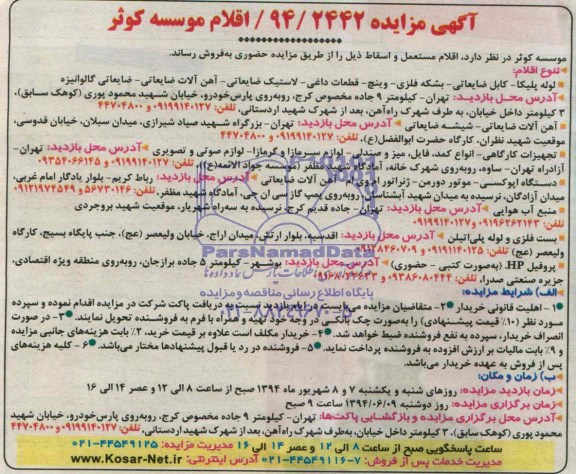 آگهی مزایده ۲۴۴۲/ ۹۴/ اقلام موسسه کوثر
موسسه کوثر در نظر دارد، اقلام مستعمل و اسقاط ذیل را از طریق مزایده حضوری به‌فروش رساند.
تنوع اقلام:
لوله پلیکا- کابل ضایعاتی- بشکه فلزی- وینچ- قطعات داغی- لاستیک ضایعاتی- آهن آلات ضایعاتی- ضایعاتی گالوانیزه
آدرس محل بازدید: تهران- کیلومتر ۹ جاده مخصوص کرج، روبه‌روی پارس‌خودرو، خیابان شهید محمود پوری (کوهک سابق)،
۳ کیلومتر داخل خیابان، به طرف شهرک راه‌آهن، بعد از شهرک شهید اردستانی، تلفن: ۰۹۱۹۹۱۴۰۱۲۷ و ۴۴۷۰۴۸۰۰
آهن آلات ضایعاتی- شیشه ضایعاتی آدرس محل بازدید: تهران- بزرگراه شهید صیاد شیرازی، میدان سبلان، خیابان فدوسی،
موقعیت شهید نظران، کارگاه حضرت ابوالفضل(ع)، تلفن: ۰۹۱۹۹۱۴۰۱۲۷ و ۴۴۷۰۴۸۰۰
تجهیزات کارگاهی- انواع کمد، فایل، میز و صندلی- لوازم سرمازا و گرمازا- لوازم صوتی و تصویری آدرس محل بازدید: تهران-
آزادراه تهران- ساوه، روبه‌روی شهرک خانه، آمادگاه شهید مظفر (موسسه جواد الائمه(ع))، تلفن: ۰۹۱۹۹۱۴۰۱۲۷ و ۰۹۳۵۴۰۶۶۱۴۵
دستگاه اپوکسی- موتور دورمن- ژنراتور آ.وی.ام- آهن آلات ضایعاتی آدرس محل بازدید: رباط کریم- بلوار یادگار امام غربی،
میدان آزادگان، نرسیده به میدان شهید آبشناسان، روبه‌روی پمپ گاز سی ان جی، آمادگاه شهید مظفر، تلفن: ۵۶۷۳۰۱۴۶ و ۰۹۱۲۱۹۷۴۵۴۹
منبع آب هوایی آدرس محل بازدید: تهران- جاده قدیم کرج، نرسیده به سه‌راه شهریار، موقعیت شهید بروجردی
تلفن: ۰۹۱۹۶۳۶۲۱۴۳ و ۰۹۱۹۹۱۴۰۱۲۷
بست فلزی و لوله پلی‌اتیلن آدرس محل بازدید: اقدسیه، بلوار ارتش، میدان اراج، خیابان ولیعصر (عج)، جنب پایگاه بسیج، کارگاه
ولیعصر (عج) تلفن: ۰۹۱۹۹۱۴۰۱۲۵ و ۰۹۱۲۸۴۶۰۷۰۹
پروفیل HP، (به‌صورت کتبی - حضوری) آدرس محل بازدید: بوشهر- کیلومتر ۵ جاده برازجان، روبه‌روی منطقه ویژه اقتصادی،
جزیره صنعتی صدرا، تلفن: ۰۹۳۸۶۰۸۰۴۴۴ و
الف) شرایط مزایده:
۱- اهلیت قانونی خریدار ۲- متقاضیان مزایده می‌بایست در ایام بازدید نسبت به دریافت پاکت شرکت در مزایده اقدام نموده و سپرده
مورد نظر (۱۰٪ قیمت پیشنهادی) را به‌صورت چک بانکی در وجه خود تهیه و همراه با فرم به فروشنده تحویل نمایند. ۳- در صورت
انصراف خریدار، سپرده به نفع فروشنده ضبط خواهد شد. ۴- خریدار مکلف است علاوه بر قیمت خرید، ۲٪ بابت هزینه‌های جانبی مزایده
و ۹٪ بابت مالیات بر ارزش افزوده به فروشنده پرداخت نماید. ۵- فروشنده در رد یا قبول پیشنهادها مختار می‌باشد. ۶- کلیه هزینه‌های
پس از فروش به عهده خریدار می‌باشد.
ب) زمان و مکان:
زمان بازدید مزایده: روزهای شنبه و یکشنبه ۷ و ۸ شهریور ماه ۱۳۹۴ صبح از ساعت ۸ الی ۱۲ و عصر ۱۴ الی ۱۶
زمان برگزاری مزایده: روز دوشنبه ۱۳۹۴/۰۶/۰۹ ساعت ۹ صبح
آدرس محل برگزاری مزایده و بازگشایی پاکت‌ها: تهران- کیلومتر ۹ جاده مخصوص کرج، روبه‌روی پارس‌خودرو، خیابان شهید
محمود پوری (کوهک سابق)، ۳ کیلومتر داخل خیابان، به‌طرف شهرک راه‌آهن، بعد از شهرک شهید اردستانی، تلفن: ۰۹۱۹۹۱۴۰۱۲۷ و ۴۴۷۰۴۸۰۰
ساعت پاسخگویی صبح از ساعت ۸ الی ۱۲ و عصر ۱۴ الی ۱۶ مدیریت مزایده: ۴۴۵۴۹۱۲۵-۰۲۱
مدیریت خدمات پس از فروش: ۷-۴۴۵۴۹۱۱۶-۰۲۱ آدرس اینترنتی: www.Kosar-Net.ir
ParsNamadData
پایگاه اطلاع رسانی مناقصه و مزایده